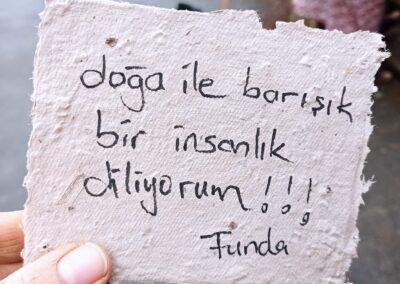 doğa ile barışık
bir insanlık
diliyorum!!!
Funda